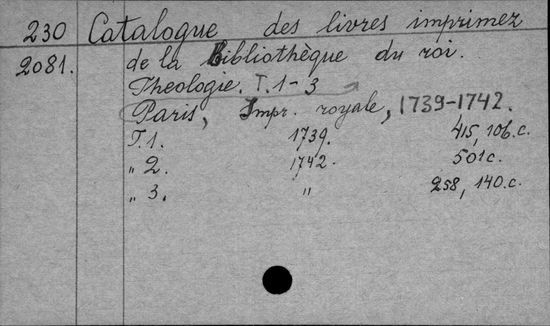 230 Catalogue des livres imprimez
2081. de la Bibliothèque du roi.
Theologie. T. 1-3
Paris, Impr. royale, 1739-1742.
T. 1. 1739. 415, 106. c.
„ 2. 1742. 501 c.
„ 3. „ 258, 140. c.